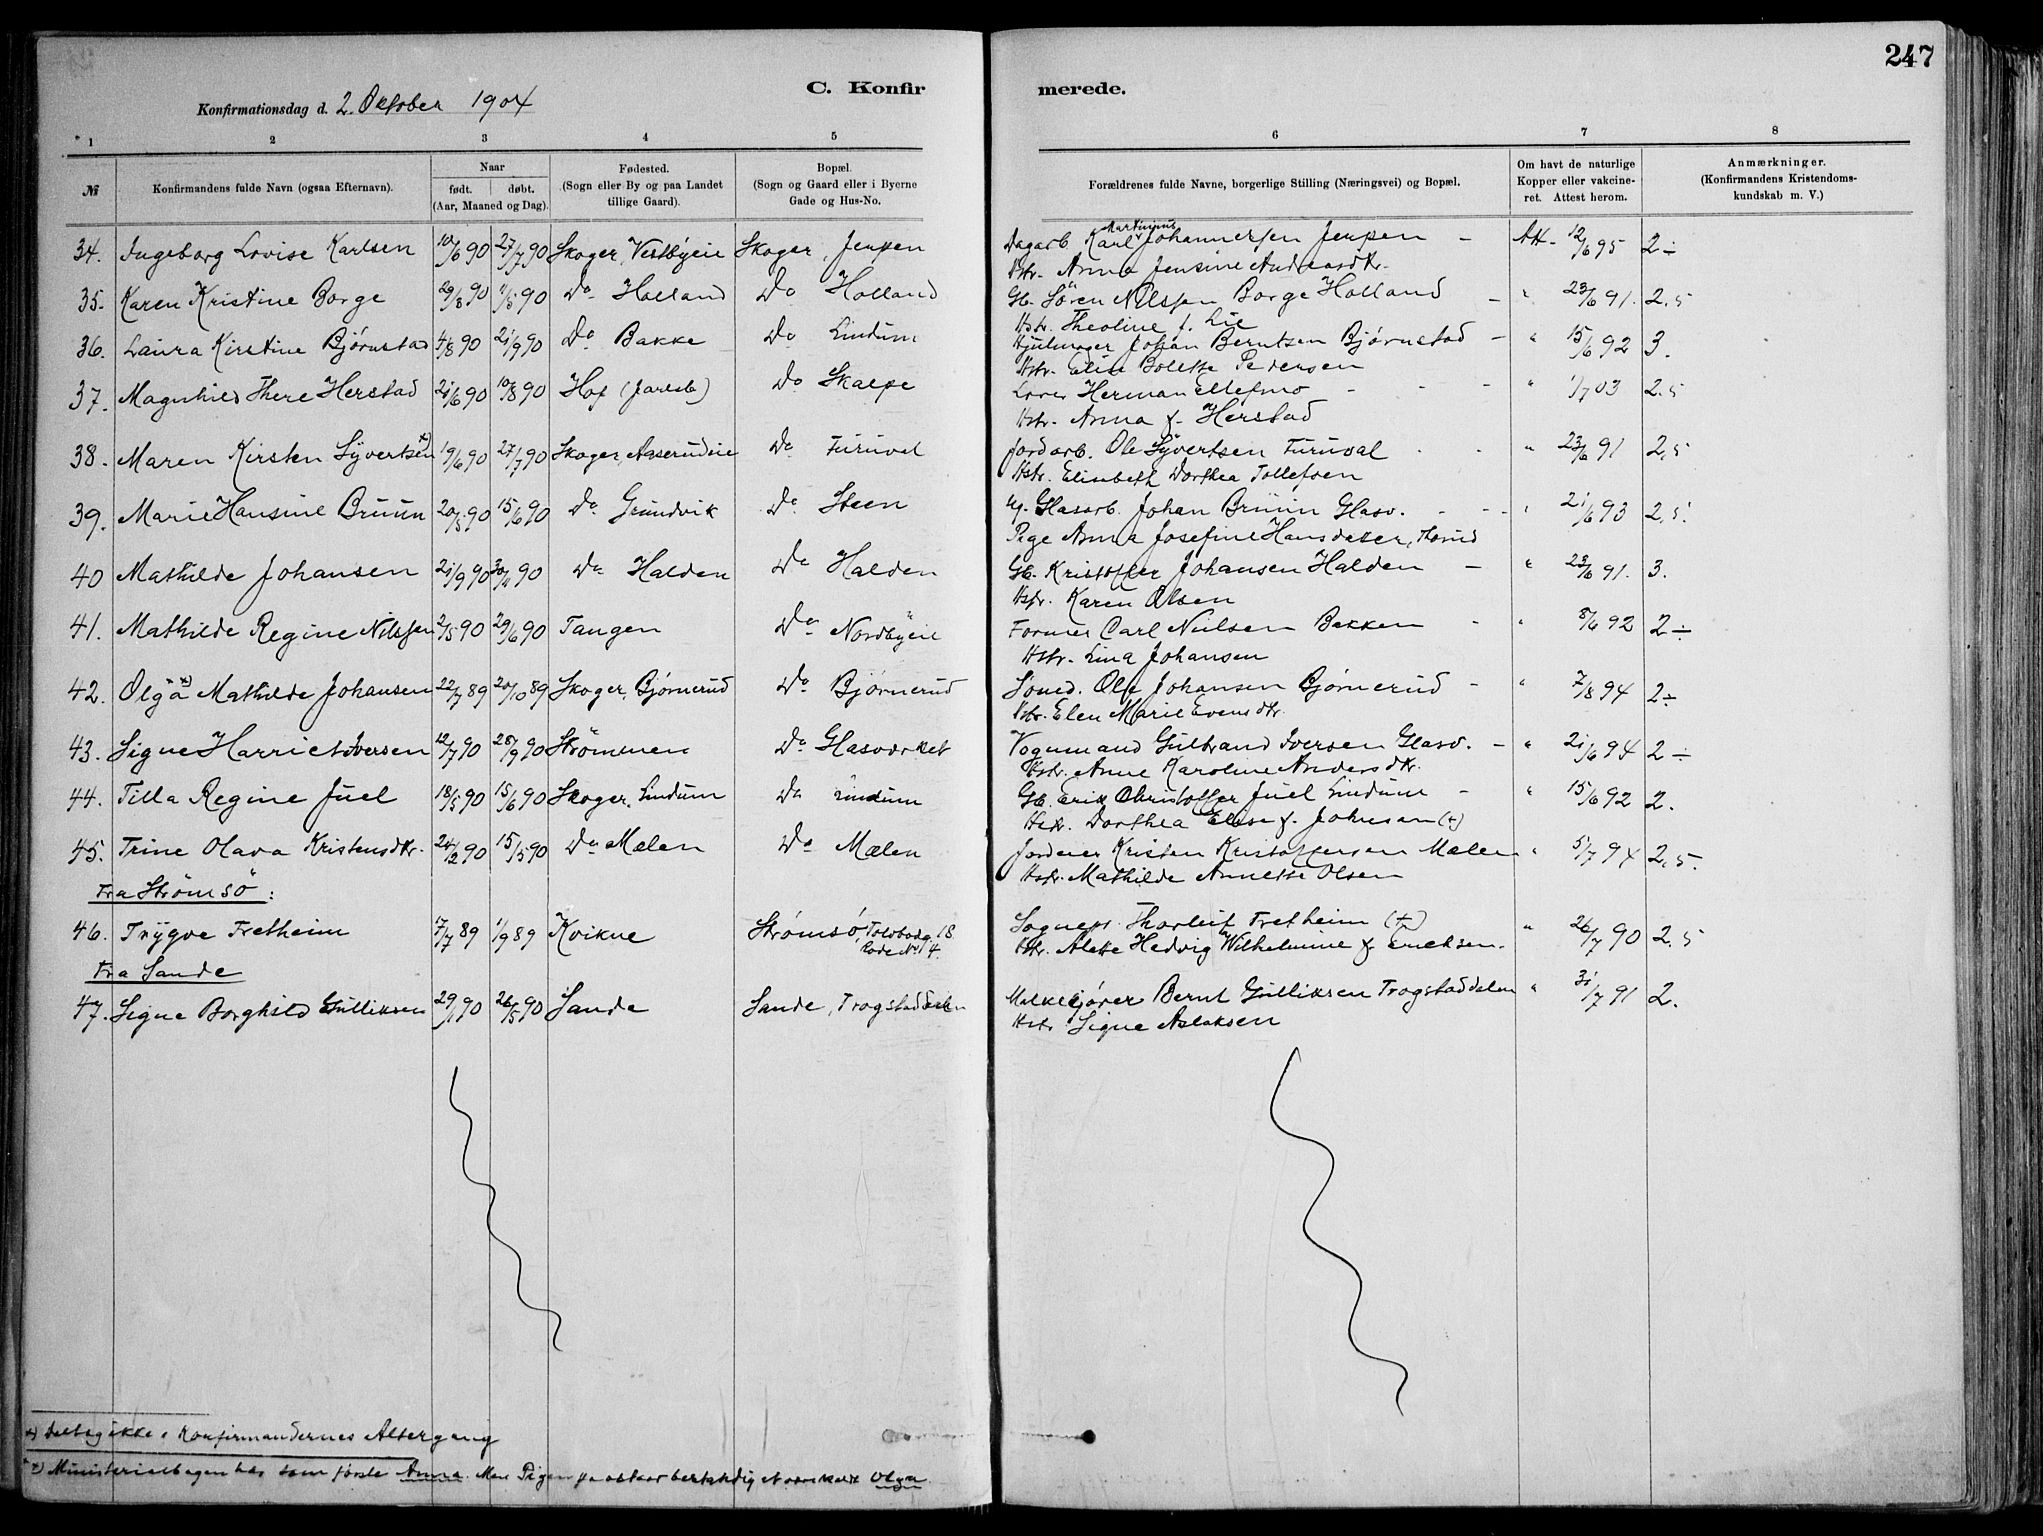 247
C. Konfir merede.
Konfirmationsdag d. 2. Oktober 1904
1 2 3 4 5 6 7 8
№
Konfirmandens fulde Navn (ogsaa Efternavn).
Naar
født. døbt.
(Aar, Maaned og Dag).
Fødested.
(Sogn eller By og paa Landet
tillige Gaard).
Bopæl.
(Sogn og Gaard eller i Byerne
Gade og Hus-No.
Forældrenes fulde Navne, borgerlige Stilling (Næringsvei) og Bopæl.
Om havt de naturlige
Kopper eller vakcine-
ret. Attest herom.
Anmærkninger.
(Konfirmandens Kristendoms-
kundskab m. V.)
34. Ingeborg Lovise Karlsen 10/6 90 27/7 90 Skoger, Vestbyeie Skoger, Jerpen Dagarb. Karl Martinius Johannesen Jerpen - Att. 12/6 95 2 ÷
Hstr. Anna Jensine Andreasdtr.
35. Karen Kristine Borge 29/3 90 11/5 90 Do Holland Do Holland Gb. Sören Nilssen Borge Holland - " 23/6 91. 2,5
Hstr. Theoline f. Lie
36. Laura Kirstine Bjørnstad 4/8 90 21/9 90 Do Bakke Do Lindum Hjulmager Johan Berntsen Bjørnstad - " 15/6 92 3.
Hstr. Elise Bolette Pedersen
37. Magnhild There Herstad 21/6 90 10/8 90 Hof (Jarlsb) Do Skalpe Herman Ellefmo - " 1/7 03 2.5
Hstr. Anna f. Herstad
38. Maren Kirsten Syvertsen 19/6 90 27/7 90 Skoger, Aaserudeie Do Furuval Jordarb. Ole Syvertsen Furuval " 23/6 91 2,5
Hstr. Elisabeth Dorthea Tollefsen
39. Marie Hansine Bruun 20/5 90 15/6 90 Do Grundvik Do Steen Ug. Glasarb. Johan Bruun Glasv. " 21/6 93 2,5.
Pige Anna Josefine Hansdatter,
40 Mathilde Johansen 21/9 90 30/11 90 Do Halden Do Halden Gb. Kristoffer Johansen Halden - " 23/6 91. 3.
Hstr. Karen Olsen
41. Mathilde Regine Nilssen 2/5 90 29/6 90 Tangen Do Nordbyeie Former Carl Nielsen Bakken - " 8/6 92 2 ÷
Hstr. Lina Johansen
42. Olga Mathilde Johansen 22/7 89 20/10 89 Skoger, Bjørnerud Do Bjørnerud Smed. Ole Johansen Bjørnerud - " 7/8 94 2 ÷
Hstr. Elen Marie Evensdtr.
43. Signe Harriet Iversen 12/7 90 28/9 90 Strömmen Do Glasværket Vognmand Gulbrand Iversen Glasv. - " 21/6 94 2 ÷
Hstr. Anne Karoline Andersdtr.
44. Tilla Regine Juel 18/5 90 15/6 90 Skoger, Lindum Do Lindum Gb. Erik Christoffer Juel Lindum - " 15/6 92 2.
Hstr. Dorthea Elise f. Johnsen (+)
45. Trine Olava Kristensdtr. 24/2 90 15/5 90 Do Mælen Do Mælen Jordeier Kristen Kristoffersen Mælen " 5/7 94 2,5.
Hstr. Mathilde Annette Olsen
Fra Strømsö:
46. Trygve Fretheim 17/7 89 1/9 89 Kvikne Strømsö, Toldbodg. 18 Sognepr. Thorleif Fretheim (+) " 26/7 90 2.5
Rode No 14. Hstr. Alette Hedvig Wilhelmine f. Ericksen.
Fra Sande
47. Signe Borghild Gulliksen 29/1 90 26/5 90 Sande Sande, Trogstaddalen Bernt Gulliksen Trogstaddalen " 31/7 91 2.
Hstr. Signe Aslaksen
x) Deltog ikke i Konfirmandernes Altergang
xx) Ministerialbogen har som første Anna. Men Pigen paastaar bestandig at være kaldt Olga.